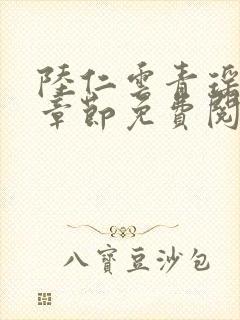 陸仁雲青瑤
章節免費閱
八寶豆沙包